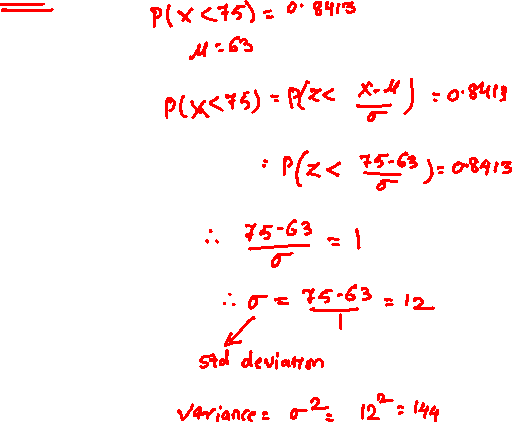 P(X<75) = 0.8413
μ = 63
P(X<75) = P(z< (X-μ)/σ) = 0.8413
= P(z < (75-63)/σ) = 0.8413
∴ (75-63)/σ = 1
∴ σ = (75-63)/1 = 12
std deviation
Variance = σ² = 12² = 144